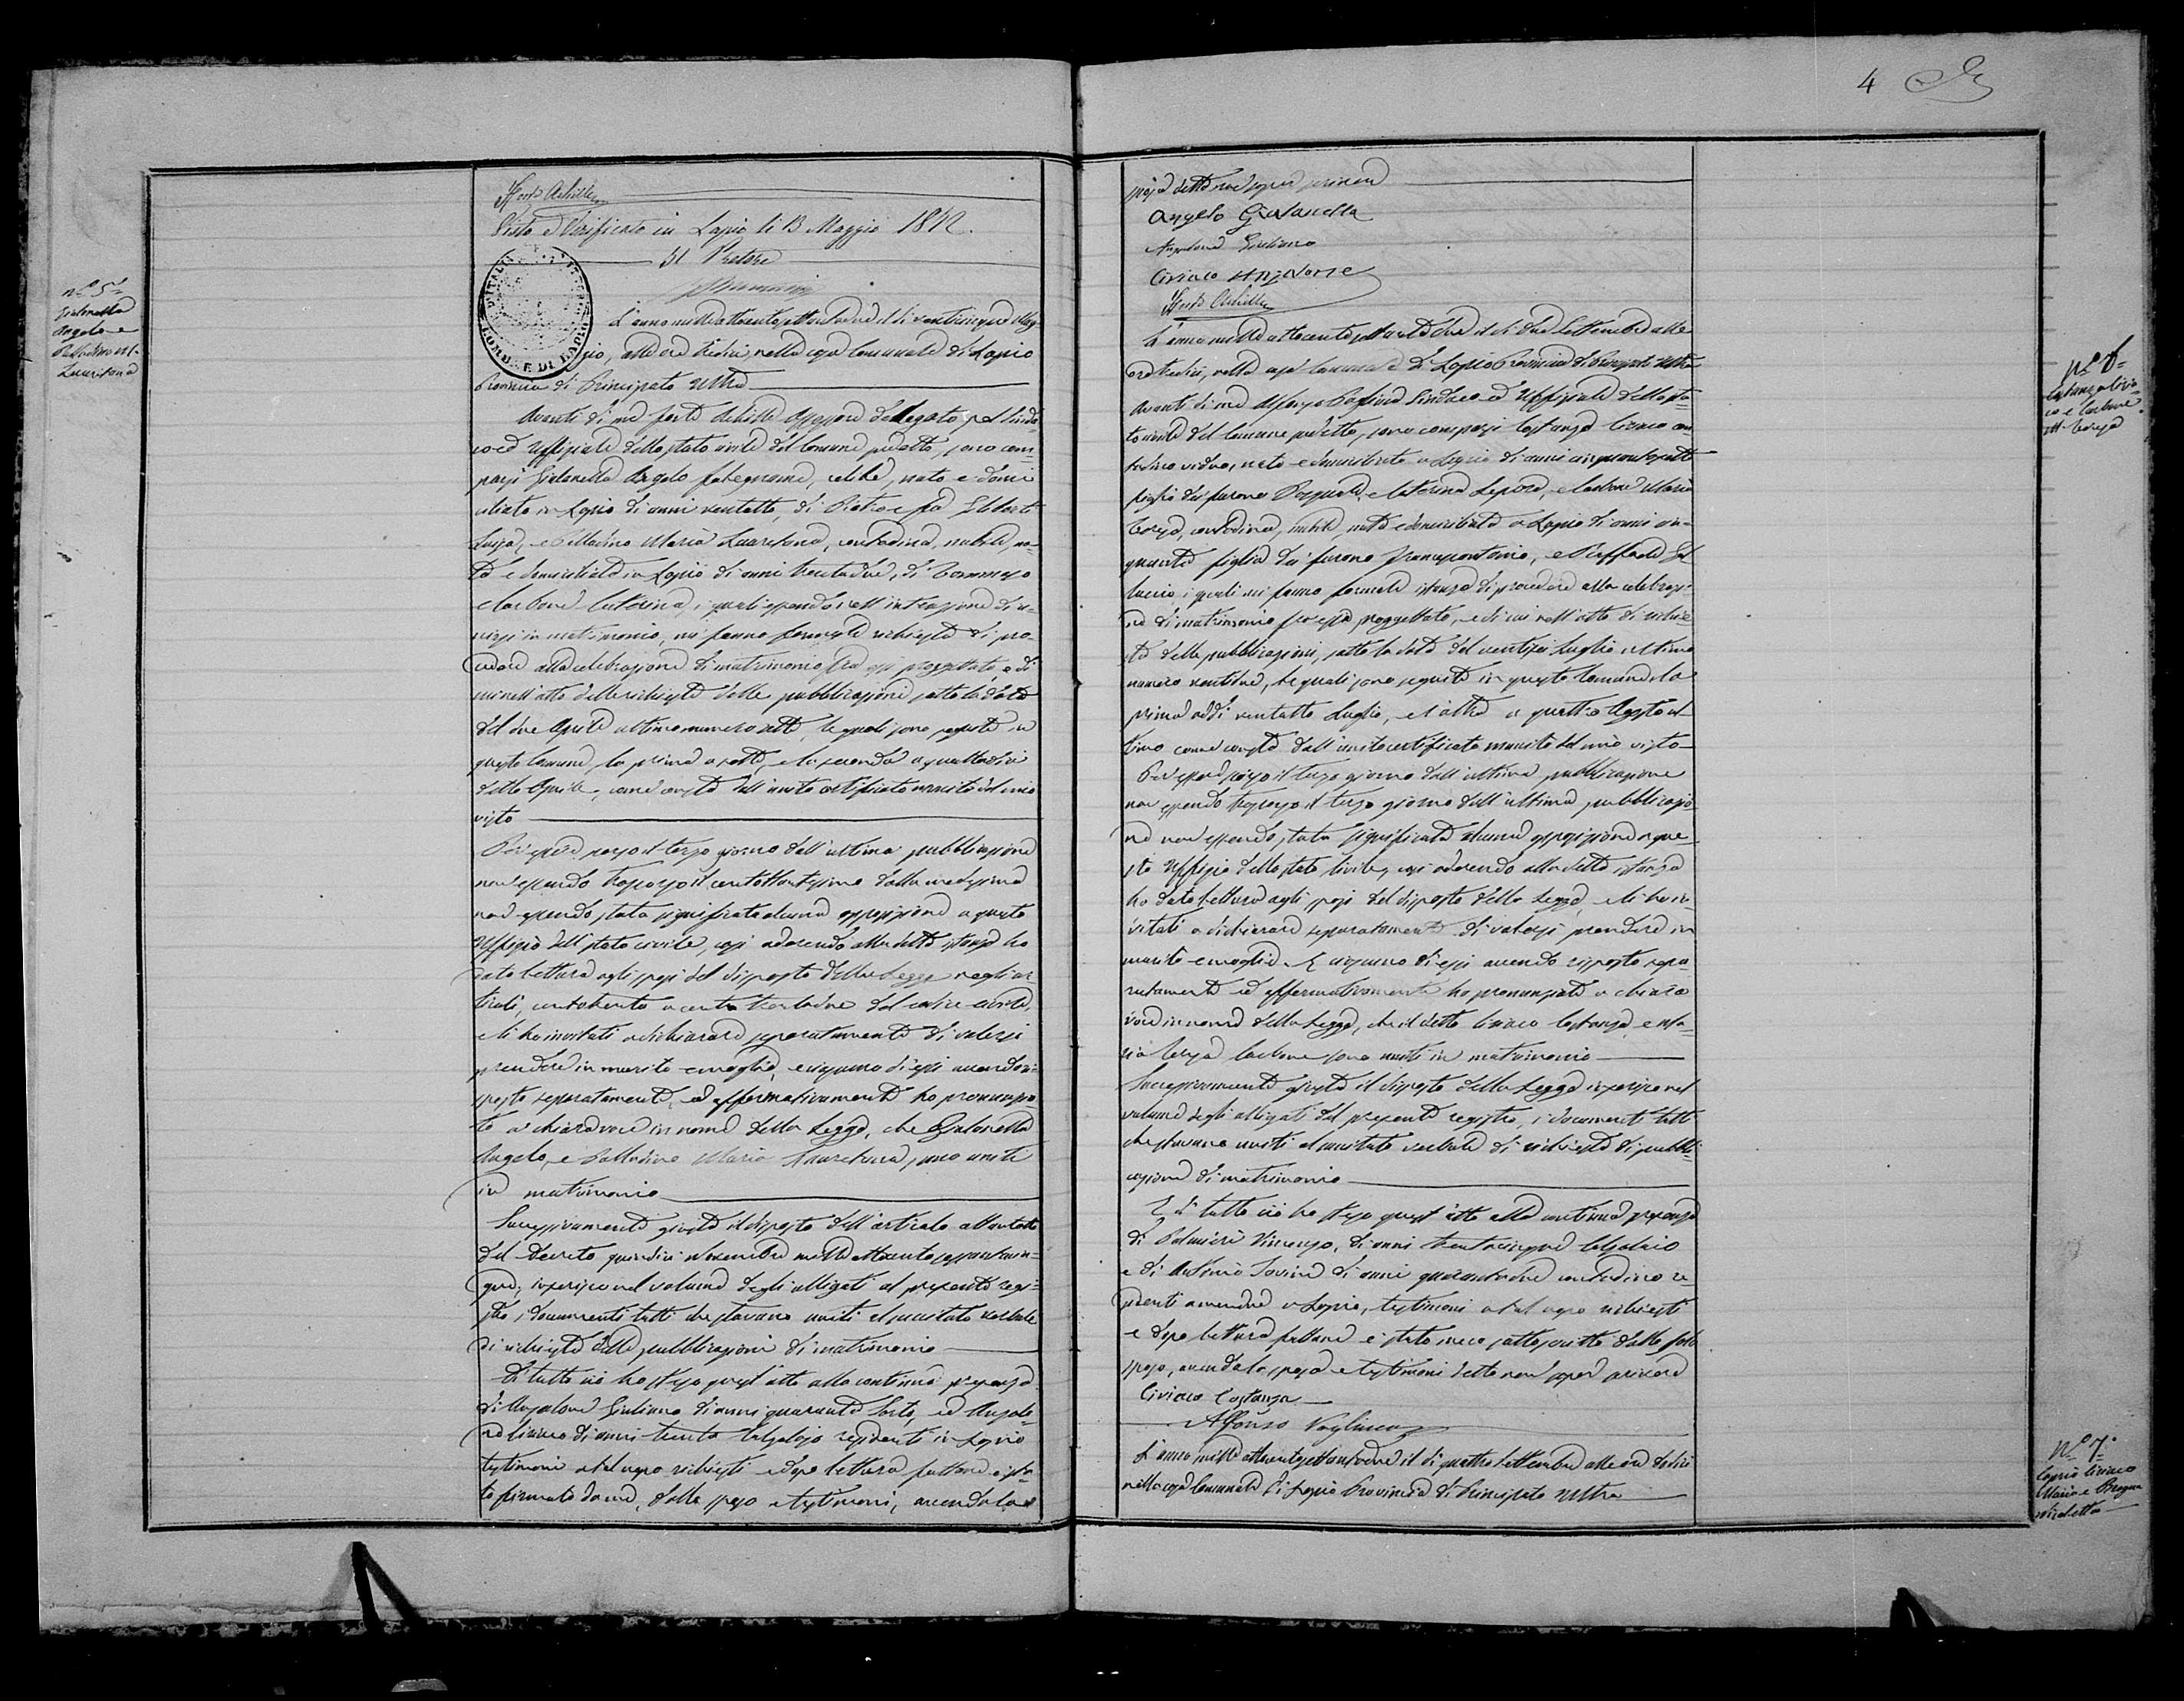 4
Forte Achille
Visto e Verificato in Lapio li 13 Maggio 1872.
Il Pretore
N.° 5
Giatonella
Angelo e
Palladino M.
Lauretana
L'anno mille ottocento settantadue il dì venticinque Mag-
gio, alle ore tredici, nella casa Comunale di Lapio
Provincia di Principato Ultra
Avanti di me Forte Achille Assessore delegato pel Sinda-
co ed Uffiziale dello stato civile del Comune predetto, sono com-
parsi Giatonella Angelo falegname, celibe, nato e domi-
ciliato in Lapio di anni ventotto, di Pietro e fu
Luisa, e Palladino Maria Lauretana, contadina, nubile, na-
ta e domiciliata in Lapio di anni trentadue, di Tommaso
e Carbone Caterina, i quali essendo nell'intenzione di u-
nirsi in matrimonio, mi fanno formale richiesta di pro-
cedere alla celebrazione di matrimonio fra essi progettato, e di
cui nell'atto della richiesta delle pubblicazioni sotto la data
del due Aprile ultimo numero sette, le quali sono seguite in
questo Comune, la prima a sette, e la seconda a quattordici
detto Aprile, come consta dall'unito certificato munito del mio
visto
Per essere scorso il terzo giorno dall'ultima pubblicazione
non essendo trascorso il centottantesimo dalla medesima
non essendo stata significata alcuna opposizione a questo
Uffizio dell'stato civile, così aderendo alla detta istanza ho
dato lettura agli sposi del disposto della Legge negli ar-
ticoli, centotrenta a cento trentadue del codice civile,
e li ho invitati a dichiarare separatamente di volersi
prendere in marito e moglie, e ciascuno di essi avendo ri-
sposto separatamente, ed affermativamente ho pronunzia-
to a chiara voce in nome della Legge, che Giatonella
Angelo, e Palladino Maria Lauretana, sono uniti
in matrimonio
Successivamente giusta il disposto dell'articolo
del decreto quindici Novembre mille ottocento sessantacin-
que, inserisco nel volume degli allegati al presente regi-
stro, i documenti tutti che stavano uniti al succitato verbale
di richiesta delle pubblicazioni di matrimonio
Di tutto ciò ho steso quest'atto alla continua presenza
di Anzalone Giuliano di anni quaranta Sarto, ed Anzalo-
ne Ciriaco di anni trenta Calzolajo residenti in Lapio
testimoni a tal uopo richiesti e dopo lettura fattane è sta-
to firmato da me, dallo sposo e testimoni, avendo la
sposa detto non saper scrivere
Angelo Giatonella
Anzalone Giuliano
Ciriaco Anzalone
Forte Achille
N.° 6
Costanza Ciria-
co e Carbone
M. Teresa
L'anno mille ottocento settantadue il dì due Settembre alle
ore tredici, nella casa Comunale di Lapio Provincia di Principato Ultra
Avanti di me Alfonso Sindaco ed Uffiziale dello sta-
to civile del Comune predetto, sono comparsi Costanza Ciriaco con-
tadino vedovo, nato e domiciliato a Lapio di anni cinquantasette
figlio dei furono Pasquale, e Caterina Lepore, e Carbone Maria
Teresa, contadina, nubile, nata e domiciliata a Lapio di anni cin-
quanta figlia dei furono Francescantonio, e Raffaela Gal-
luccio, i quali mi fanno formale istanza di procedere alla celebrazio-
ne di matrimonio fra essi proggettato, e di cui nell'atto di richie-
sta delle pubblicazioni, sotto la data del ventisei Luglio ultimo
numero ventidue, le quali sono seguite in questo Comune la
prima addì ventotto Luglio, e l'altra a quattro Agosto ul-
timo come consta dall'unito certificato munito del mio visto
Per essere scorso il terzo giorno dall'ultima pubblicazione
non essendo trascorso il terzo giorno dall'ultima pubblicazio-
ne non essendo stata significata alcuna opposizione a que-
sto Uffizio dello stato Civile, così aderendo alla detta istanza
ho dato lettura agli sposi del disposto della Legge, e li ho in-
vitati a dichiarare separatamente di volersi prendere in
marito e moglie. E ciascuno di essi avendo risposto sepa-
ratamente ed affermativamente ho pronunziato a chiara
voce in nome della Legge, che il detto Ciriaco Costanza, e Ma-
ria Teresa Carbone sono uniti in matrimonio
Successivamente giusta il disposto della Legge inserisco nel
volume degli allegati del presente registro, i documenti tutti
che stavano uniti al succitato verbale di richiesta di pubbli-
cazione di matrimonio
E di tutto ciò ho steso quest'atto alla continua presenza
di Palmieri Vincenzo, di anni trentacinque Calzolaio
e di Antonio Savino di anni quarantadue contadino re-
sidenti amendue a Lapio, testimoni a tal uopo richiesti
e dopo lettura fattane è stato meco sottoscritto dallo solo
sposo, avendo la sposa e testimoni detto non saper scrivere
Ciriaco Costanza
Alfonso
N.° 7.
Caprio Ciriaco
Maria e
Nicoletta
L'anno mille ottocento settantadue il dì quattro Settembre alle ore dodici
nella casa Comunale di Lapio Provincia di Principato Ultra